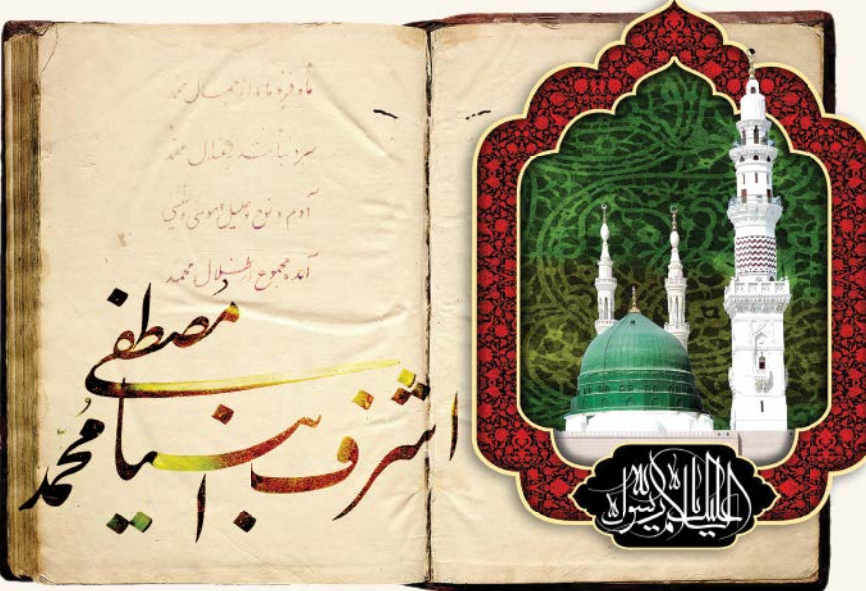 ماه فرو ماند از جمال محمد
سرو نباشد به اعتدال محمد
آدم و نوح و خلیل و موسی و عیسی
آمده مجموع در ظلال محمد
اشرف انبیا محمد مصطفی
السلام علیک یا رسول الله